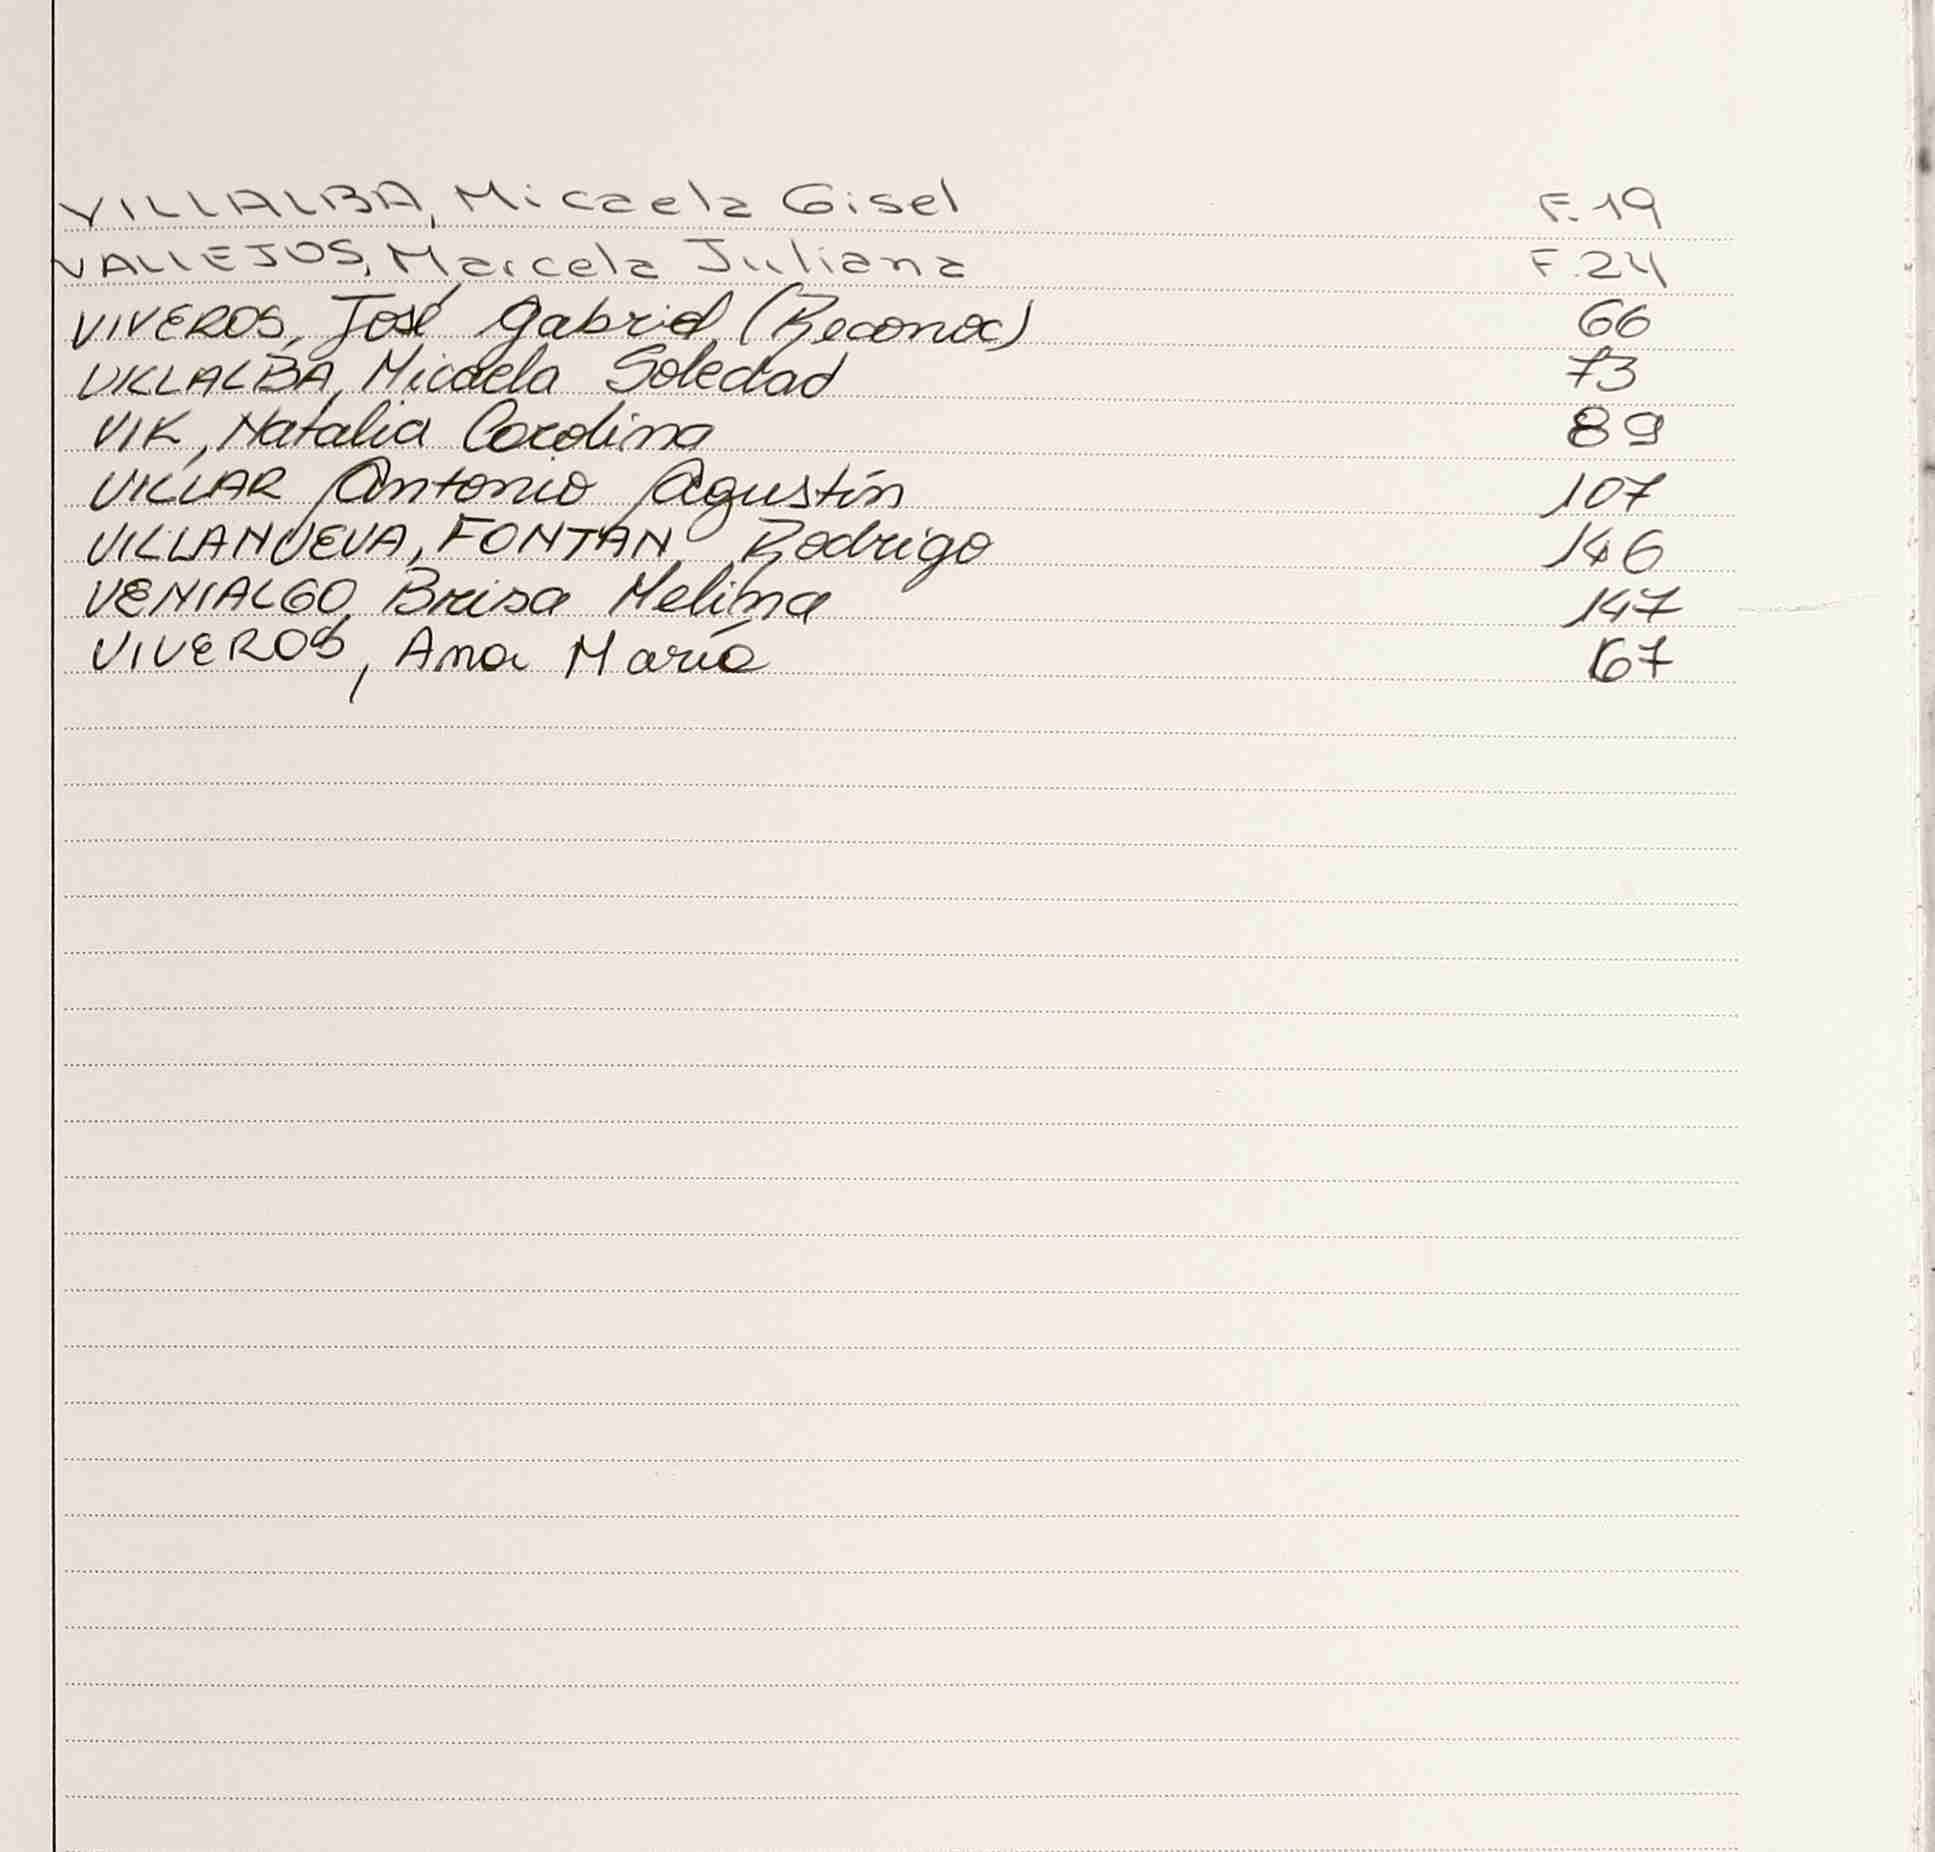 VILLALBA, Micaela Gisel F. 19
VALLEJOS, Marcela Juliana F. 24
VIVEROS, José Gabriel (Reconoc) 66
VILLALBA, Micaela Soledad 73
VIK, Natalia Carolina 89
VILLAR Antonio Agustín 107
VILLANUEVA, FONTAN Rodrigo 146
VENIALGO, Brisa Melina 147
VIVEROS, Ana María 167